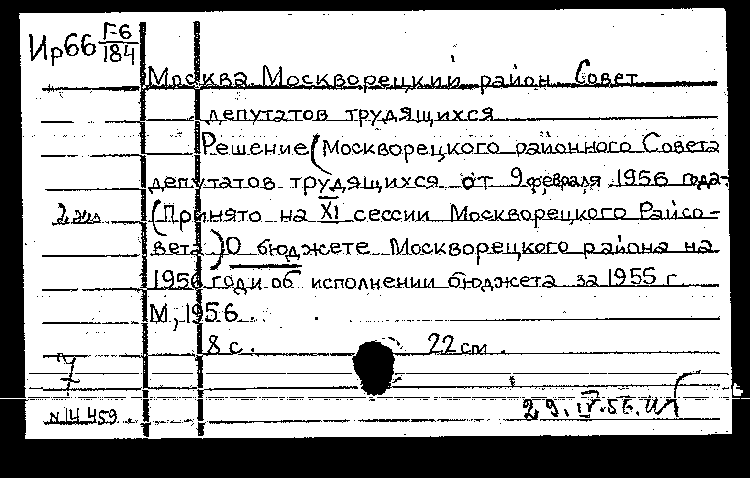 Ир66 Г6/184
Москва. Москворецкий район. Совет
депутатов трудящихся
Решение (Москворецкого районного Совета
депутатов трудящихся от 9 февраля 1956 года.
2 экз (Принято на XI сессии Москворецкого Райсо-
вета) О бюджете Москворецкого района на
1956 год и об исполнении бюджета за 1955 г.
М, 1956.
8 с. 22 см.
7
N 14 459 29.IV.56.